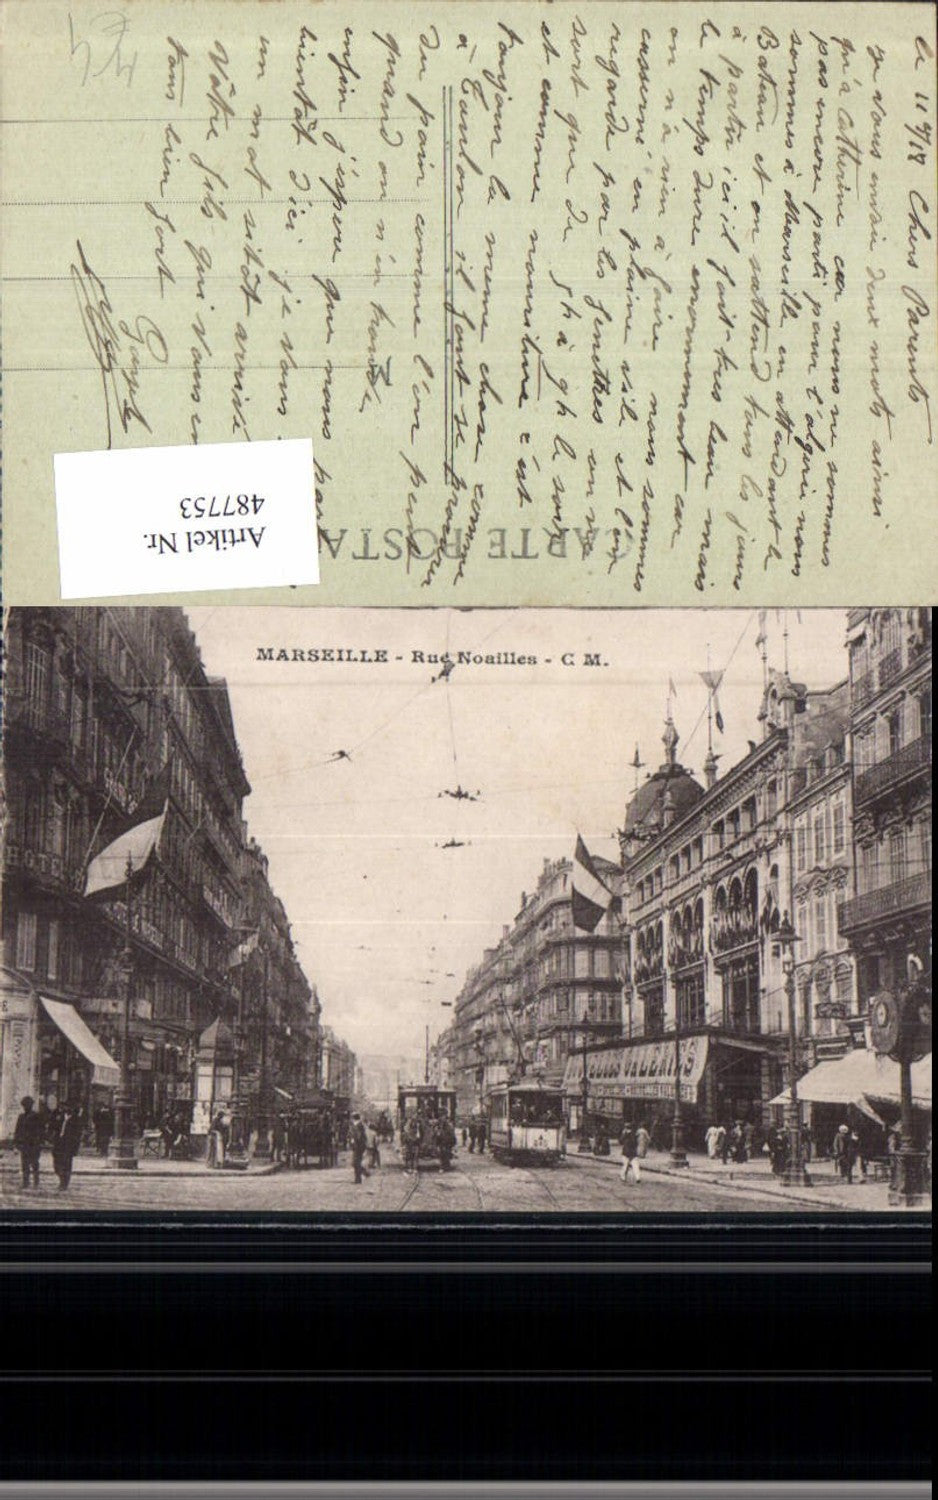 le 11 9/18 Chers Parents
je vous envoie deux mots ainsi
qu'à Catherine car nous ne sommes
pas encore parti pour l'algerie nous
sommes à Marseille en attendant le
Bateau et on sattend tous les jours
à partir ici il fait tres beau mais
le temps dure enormement car
on n'à rien à faire nous sommes
caserné en pleine vile et l'on
regarde par les fenetres on ne
sort que de 5h à 9h le soir
et comme nouriture c'est
toujour la meme chose comme
à Toulon il faut se
du pain comme l'on peut
quand on n'en trouve
enfin j'espere que nous
bientôt d'ici je vous
un mot sitôt arrivé
Vôtre fils qui vous
tous bien fort
CARTE POSTA
Artikel Nr.
487753
MARSEILLE - Rue Noailles - C M.
HOTEL
NOUVELLES GALERIES